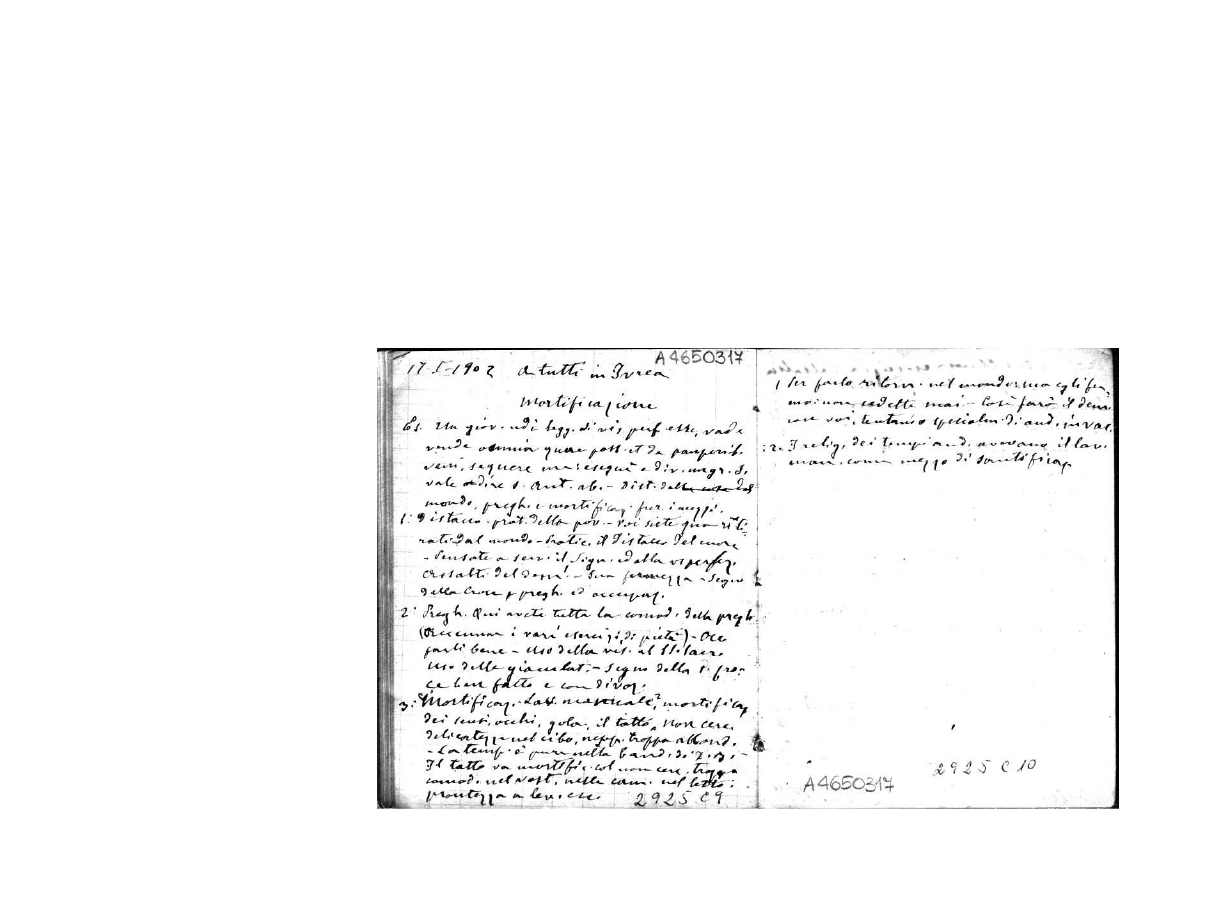 A4650317
17-I-1902 a tutti in Ivrea
Mortificazione
Es. Un giov. udì legg. di vis perf. esse, vade
vende omnia quae poss. et da pauperib.
veni, sequere me: eseguì e div. un gr. S.
vale a dire S. Ant. ab. - Dist. dal
mondo, pregh. e mortificaz. fur. i mezzi.
1: Distacco. prat. della pov. - Voi siete qua riti-
rati dal mondo - Pratic. il distacco del cuore
- Pensate a serv. il Sign. ed alla vs perfez.
assalti del dem. - Sua fermezza - Segno
della Croce, pregh. ed occupaz.
2: Pregh. Qui avete tutta la comod. della pregh.
(Accennar i vari esercizi di pietà) - Occ.
farli bene - Uso della vis. al SS. Sacr.
Uso delle giaculat. - Segno della S. Cro-
ce ben fatto e con divoz.
3: Mortificaz. Lav. manuale, mortificaz
dei sensi, occhi, gola, il tatto, Non cerc.
delicatezza nel cibo, nepp. troppa abbond.
- La temp. è pure nella band. di
Il tatto va mortific. col non cerc. troppa
comod. nel vest., nella cam. nel letto:
prontezza a lev. ecc.
2925 C9
1 Per farlo ritorn. nel mondo: ma egli fer-
mo: non cedette mai - Così farà il dem.
con voi, tentando specialm. di and. in vac.
2. I relig. dei tempi and. avevano il lav.
man. come mezzo di santificaz.
2925 C10
A4650317